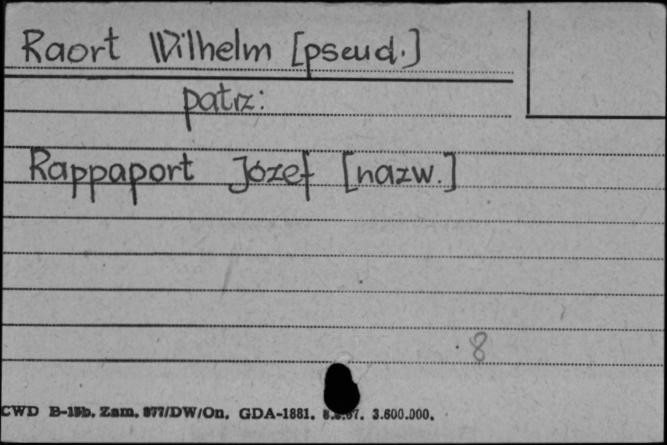 Raort Wilhelm [pseud.]
patrz:
Rappaport Józef [nazw.]
8
CWD B-15b. Zam. 877/DW/On. GDA-1881. 3.600.000.